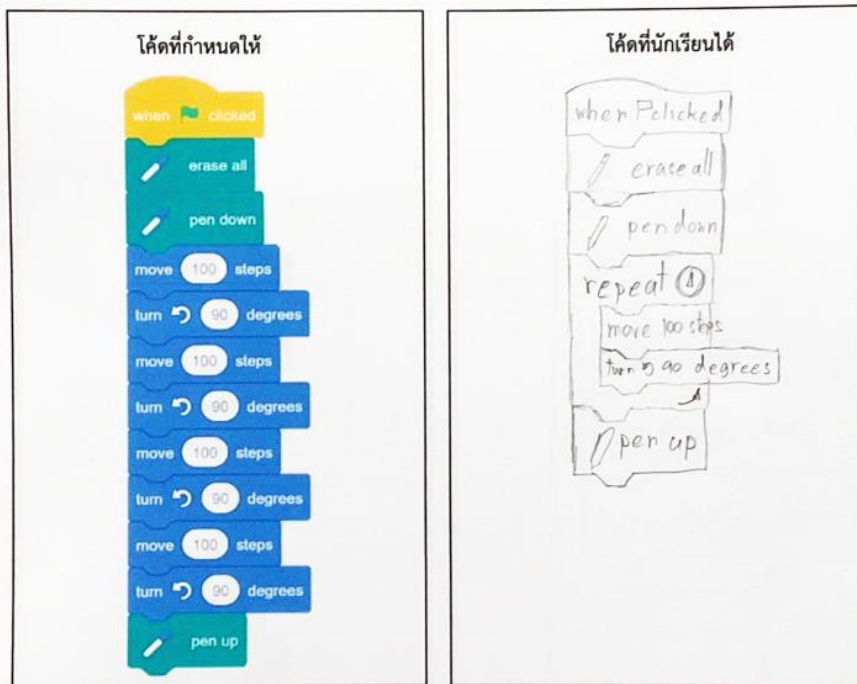 โค้ดที่กำหนดให้
when clicked
erase all
pen down
move 100 steps
turn 90 degrees
move 100 steps
turn 90 degrees
move 100 steps
turn 90 degrees
move 100 steps
turn 90 degrees
pen up
โค้ดที่นักเรียนได้
when clicked
erase all
pen down
repeat
move 100 steps
turn 90 degrees
pen up